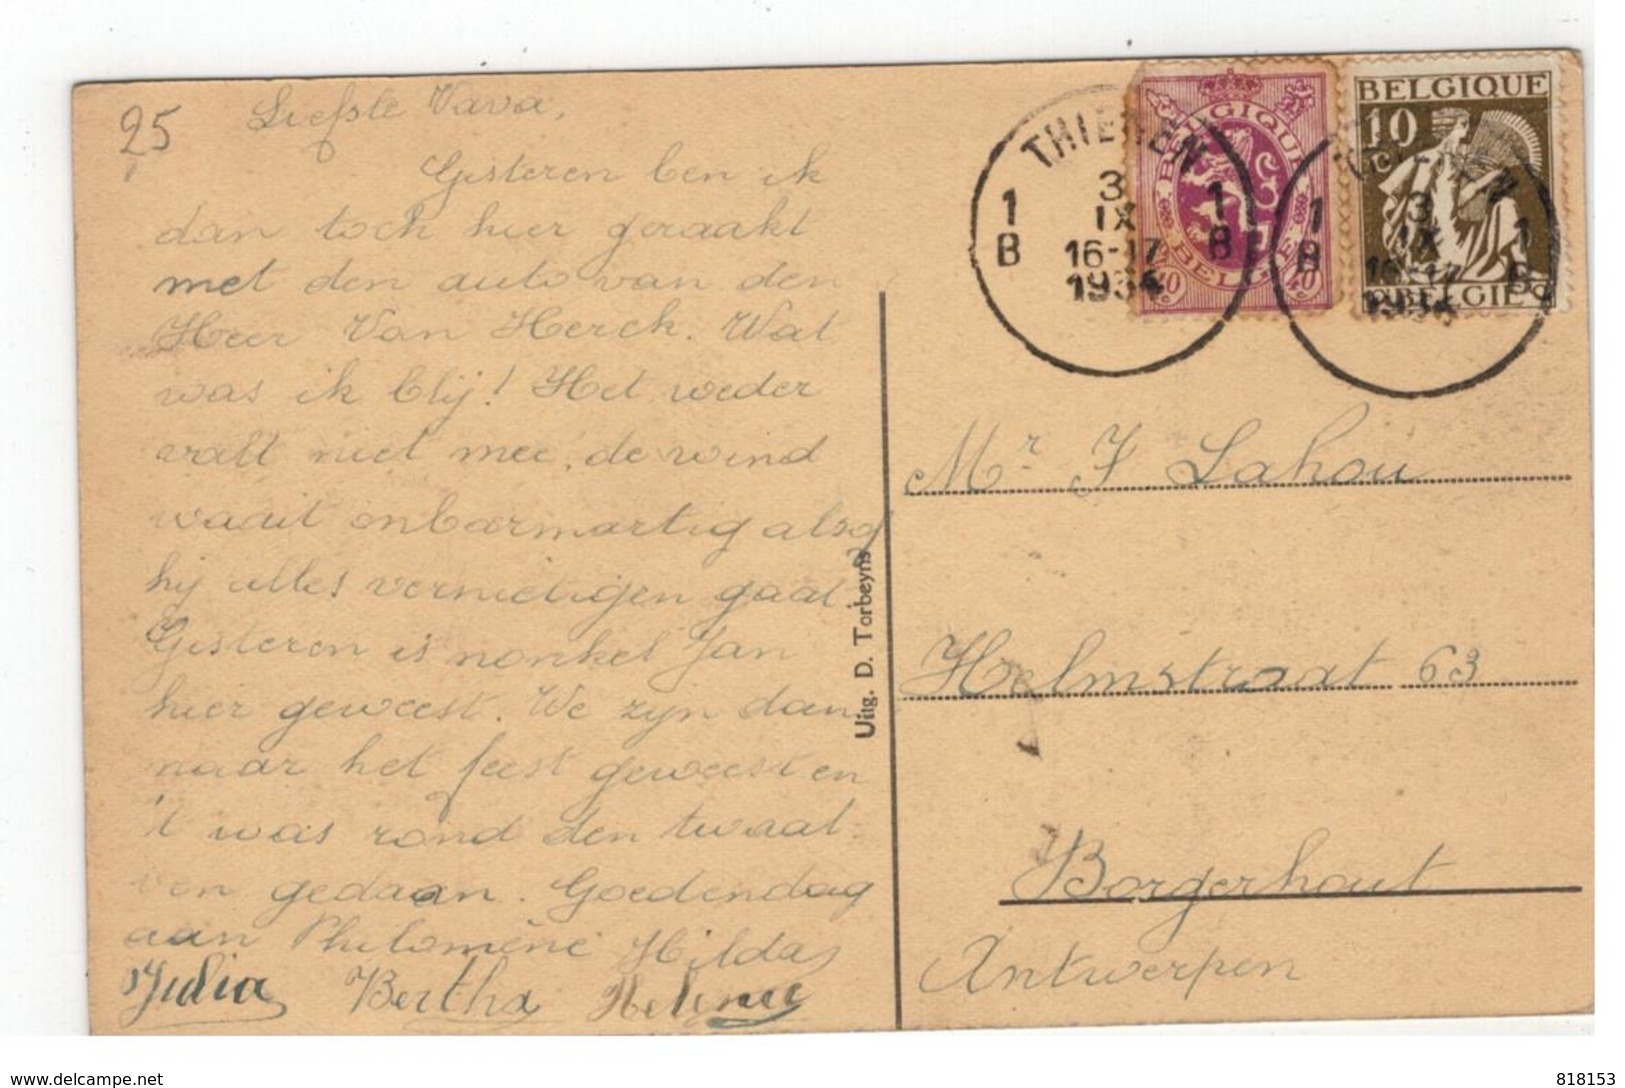 25
Liefste Vava,
Gisteren ben ik
dan toch hier geraakt
met den auto van den
Heer Van Herck. Wat
was ik blij! Het weder
valt niet mee, de wind
waait onbarmartig alsof
hij alles vernietigen gaat.
Gisteren is nonkel Jan
hier geweest. We zijn dan
naar het feest geweest en
't was rond den twaal-
ven gedaan. Goedendag
aan Philomène Hilda
Julia Bertha Helene
Uitg. D. Torbeyns
THIENEN
3
IX
16-17
1934
1
B
1
B
BELGIQUE
BELGIE
40
c
40
c
THIENEN
3
IX
16-17
1934
1
B
1
B
BELGIQUE
10
c
BELGIE
Mr F Lahou
Helmstraat 63
Borgerhout
Antwerpen
www.delcampe.net
818153